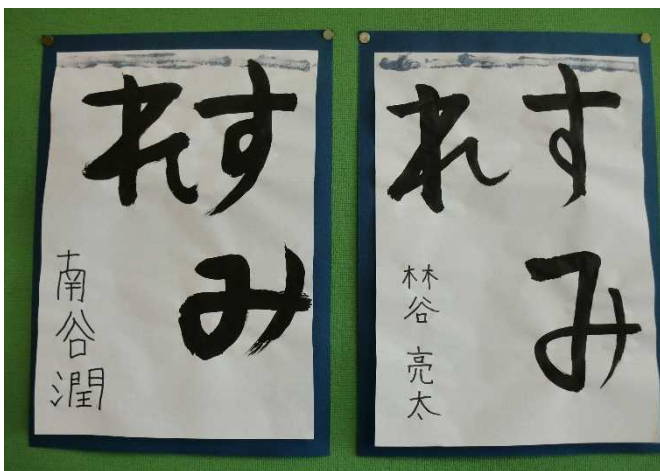 すみ
れ
南谷潤
すみ
れ
林谷 亮太